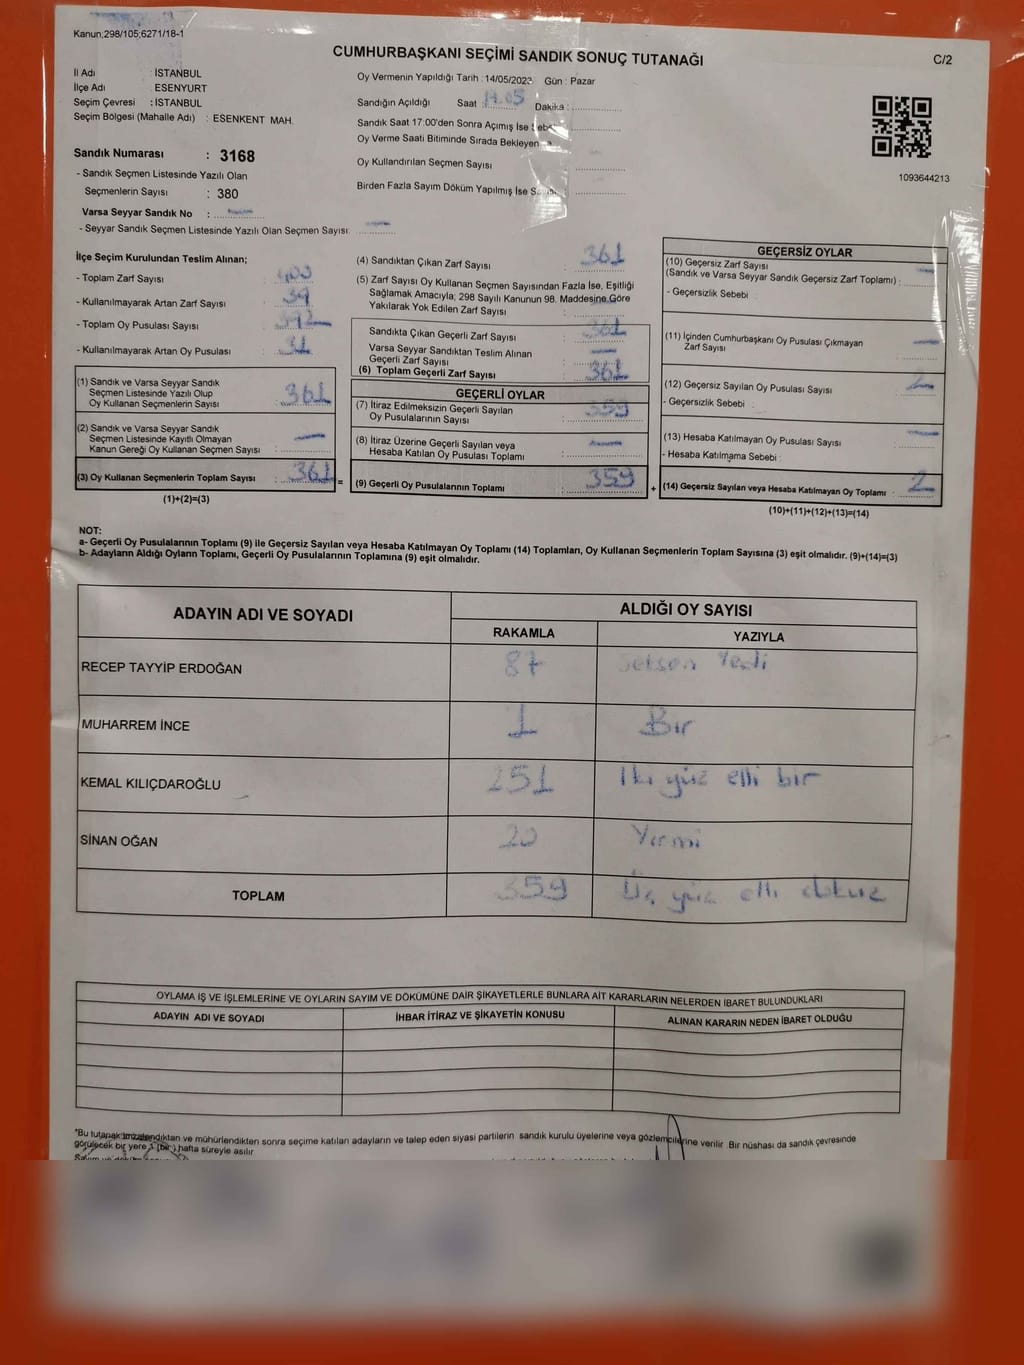 Kanun;298/105;6271/18-1
CUMHURBAŞKANI SEÇİMİ SANDIK SONUÇ TUTANAĞI
C/2
İl Adı : İSTANBUL
İlçe Adı : ESENYURT
Seçim Çevresi : İSTANBUL
Seçim Bölgesi (Mahalle Adı) : ESENKENT MAH.
Sandık Numarası : 3168
- Sandık Seçmen Listesinde Yazılı Olan
Seçmenlerin Sayısı : 380
Varsa Seyyar Sandık No :
- Seyyar Sandık Seçmen Listesinde Yazılı Olan Seçmen Sayısı:
Oy Vermenin Yapıldığı Tarih :14/05/2023 Gün : Pazar
Sandığın Açıldığı Saat : Dakika :
Sandık Saat 17:00'den Sonra Açımış İse
Oy Verme Saati Bitiminde Sırada Bekleyen
Oy Kullandırılan Seçmen Sayısı
Birden Fazla Sayım Döküm Yapılmış İse
1093644213
İlçe Seçim Kurulundan Teslim Alınan;
- Toplam Zarf Sayısı : 400
- Kullanılmayarak Artan Zarf Sayısı : 39
- Toplam Oy Pusulası Sayısı : 392
- Kullanılmayarak Artan Oy Pusulası : 31
(1) Sandık ve Varsa Seyyar Sandık
Seçmen Listesinde Yazılı Olup
Oy Kullanan Seçmenlerin Sayısı : 361
(2) Sandık ve Varsa Seyyar Sandık
Seçmen Listesinde Kayıtlı Olmayan
Kanun Gereği Oy Kullanan Seçmen Sayısı :
(3) Oy Kullanan Seçmenlerin Toplam Sayısı : 361
(1)+(2)=(3)
=
(4) Sandıktan Çıkan Zarf Sayısı : 361
(5) Zarf Sayısı Oy Kullanan Seçmen Sayısından Fazla İse, Eşitliği
Sağlamak Amacıyla; 298 Sayılı Kanunun 98. Maddesine Göre
Yakılarak Yok Edilen Zarf Sayısı :
Sandıkta Çıkan Geçerli Zarf Sayısı : 361
Varsa Seyyar Sandıktan Teslim Alınan
Geçerli Zarf Sayısı :
(6) Toplam Geçerli Zarf Sayısı : 361
GEÇERLİ OYLAR
(7) İtiraz Edilmeksizin Geçerli Sayılan
Oy Pusulalarının Sayısı : 359
(8) İtiraz Üzerine Geçerli Sayılan veya
Hesaba Katılan Oy Pusulası Toplamı :
(9) Geçerli Oy Pusulalarının Toplamı : 359
+
GEÇERSİZ OYLAR
(10) Geçersiz Zarf Sayısı
(Sandık ve Varsa Seyyar Sandık Geçersiz Zarf Toplamı) :
- Geçersizlik Sebebi :
(11) İçinden Cumhurbaşkanı Oy Pusulası Çıkmayan
Zarf Sayısı :
(12) Geçersiz Sayılan Oy Pusulası Sayısı : 2
- Geçersizlik Sebebi :
(13) Hesaba Katılmayan Oy Pusulası Sayısı :
- Hesaba Katılmama Sebebi :
(14) Geçersiz Sayılan veya Hesaba Katılmayan Oy Toplamı : 2
(10)+(11)+(12)+(13)=(14)
NOT:
a- Geçerli Oy Pusulalarının Toplamı (9) ile Geçersiz Sayılan veya Hesaba Katılmayan Oy Toplamı (14) Toplamları, Oy Kullanan Seçmenlerin Toplam Sayısına (3) eşit olmalıdır. (9)+(14)=(3)
b- Adayların Aldığı Oyların Toplamı, Geçerli Oy Pusulalarının Toplamına (9) eşit olmalıdır.
ADAYIN ADI VE SOYADI ALDIĞI OY SAYISI
RAKAMLA YAZIYLA
RECEP TAYYİP ERDOĞAN 87 Seksen Yedi
MUHARREM İNCE 1 Bir
KEMAL KILIÇDAROĞLU 251 İki yüz elli bir
SİNAN OĞAN 20 Yirmi
TOPLAM 359 Üç yüz elli dokuz
OYLAMA İŞ VE İŞLEMLERİNE VE OYLARIN SAYIM VE DÖKÜMÜNE DAİR ŞİKAYETLERLE BUNLARA AİT KARARLARIN NELERDEN İBARET BULUNDUKLARI
ADAYIN ADI VE SOYADI İHBAR İTİRAZ VE ŞİKAYETİN KONUSU ALINAN KARARIN NEDEN İBARET OLDUĞU
*Bu tutanak imzalandıktan ve mühürlendikten sonra seçime katılan adayların ve talep eden siyasi partilerin sandık kurulu üyelerine veya gözlemcilerine verilir. Bir nüshası da sandık çevresinde
görülecek bir yere 1 (bir) hafta süreyle asılır.